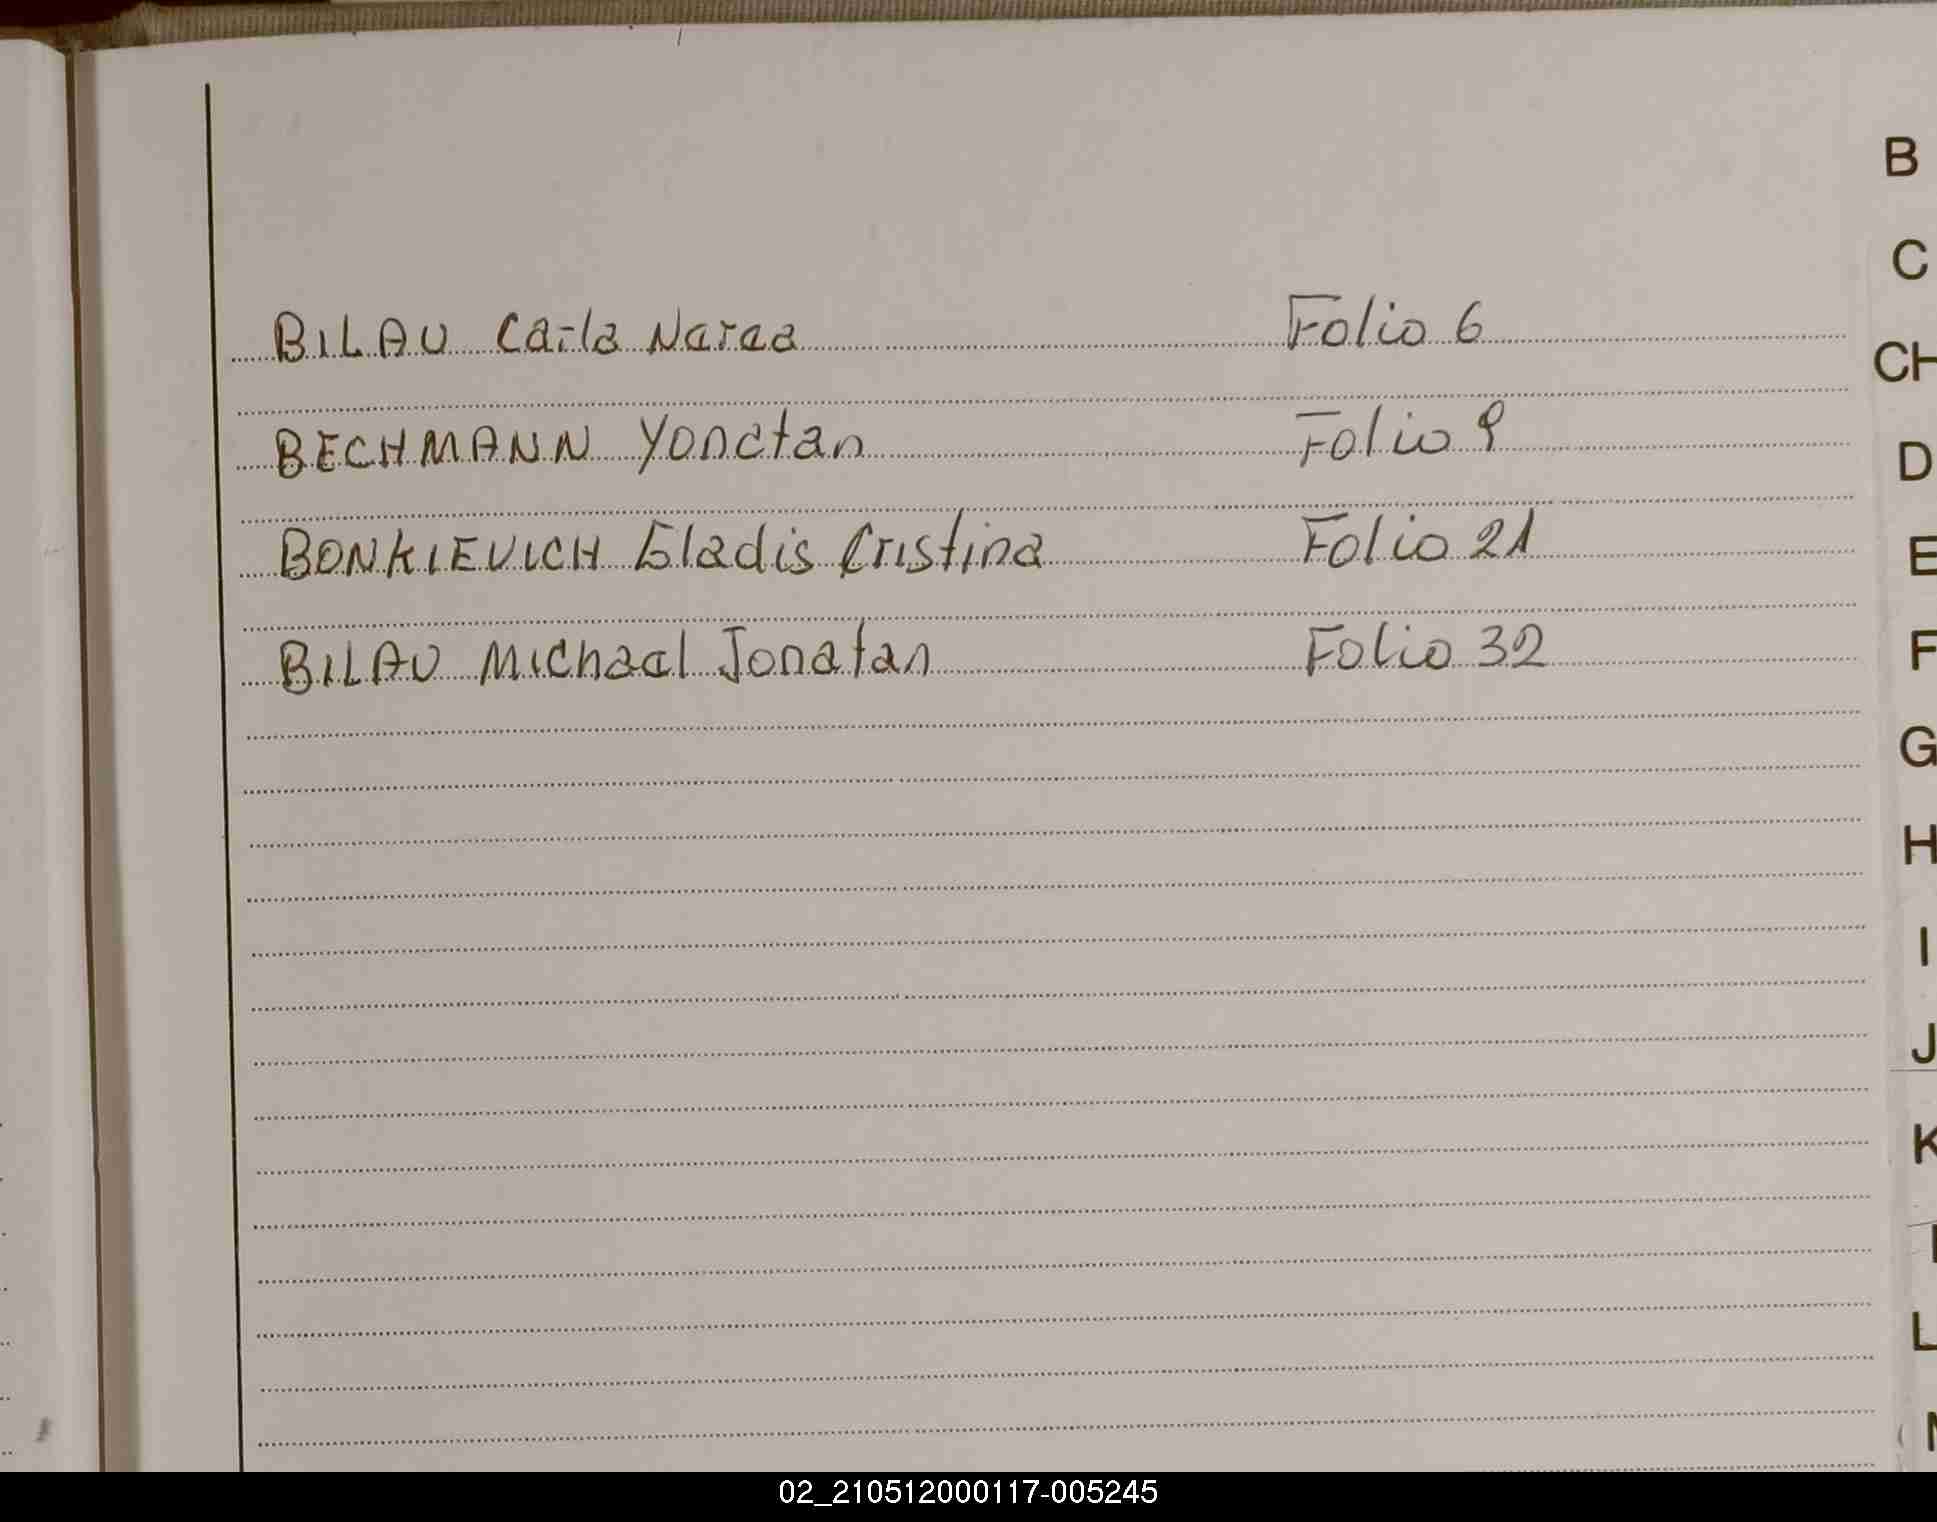 BILAU Carla Narea Folio 6
BECHMANN Yonatan Folio 9
BONKIEVICH Gladis Cristina Folio 21
BILAU Michael Jonatan Folio 32
B
C
CH
D
E
F
G
H
I
J
K
L
02_210512000117-005245